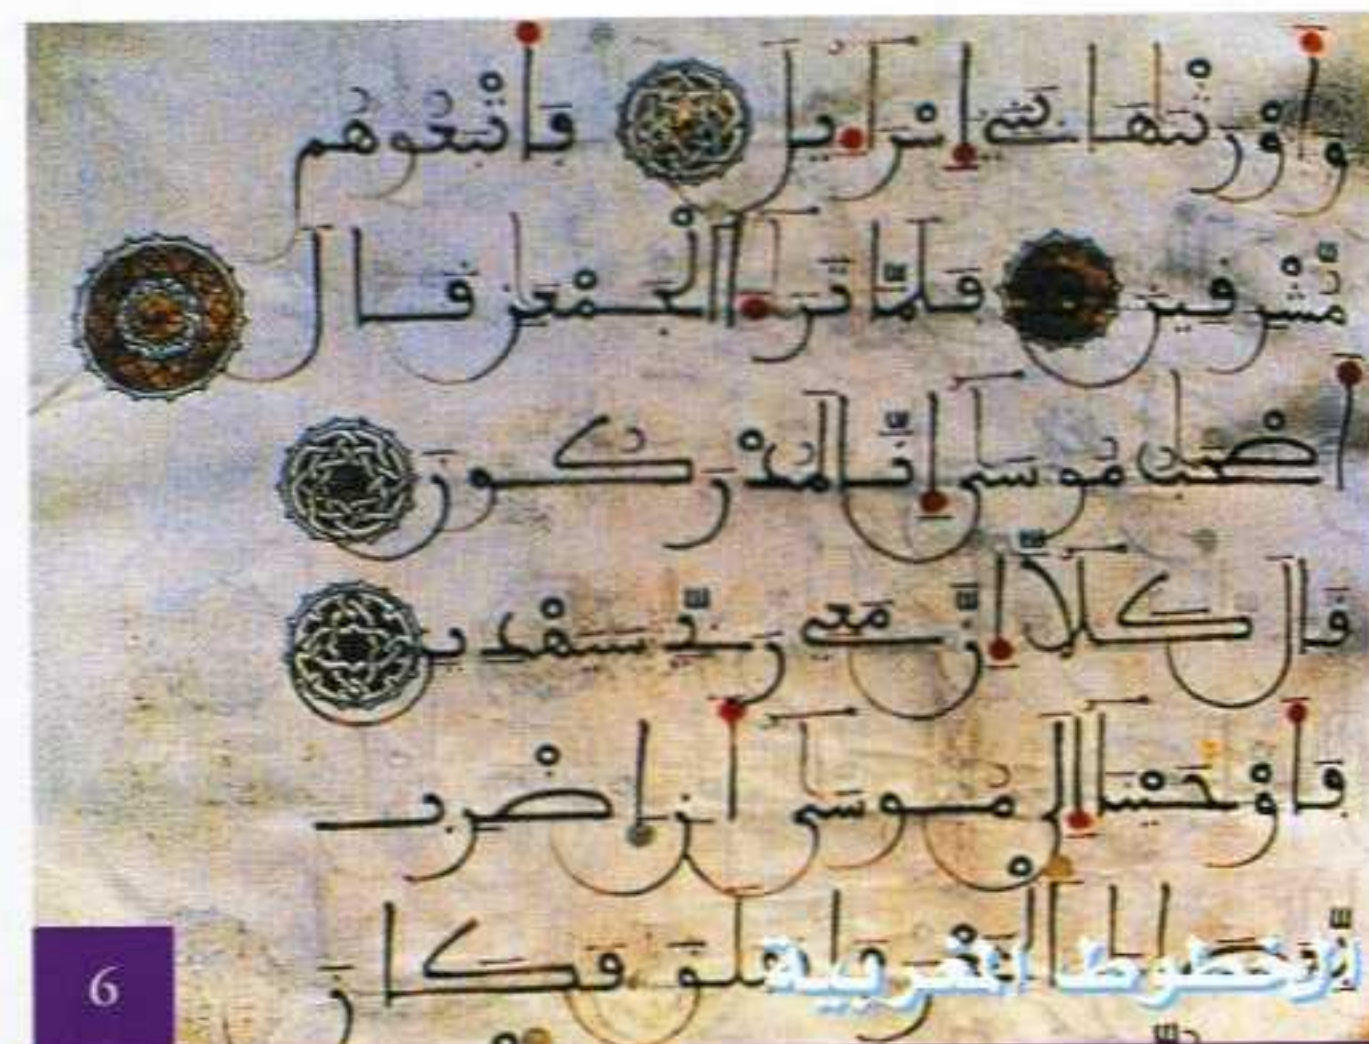 وَأَوْرَثْنَٰهَا بَنِي إِسْرَٰٓءِيلَ فَأَتْبَعُوهُم
مُّشْرِفِينَ فَلَمَّا تَرَٰٓءَا الْجَمْعَٰنِ قَالَ
أَصْحَٰبُ مُوسَىٰٓ إِنَّا لَمُدْرَكُونَ
قَالَ كَلَّآ إِنَّ مَعِي رَبِّي سَيَهْدِينِ
فَأَوْحَيْنَآ إِلَىٰ مُوسَىٰٓ أَنِ اضْرِب
بِّعَصَاكَ الْبَحْرَ فَانفَلَقَ فَكَانَ
الخطوط المغربية
6